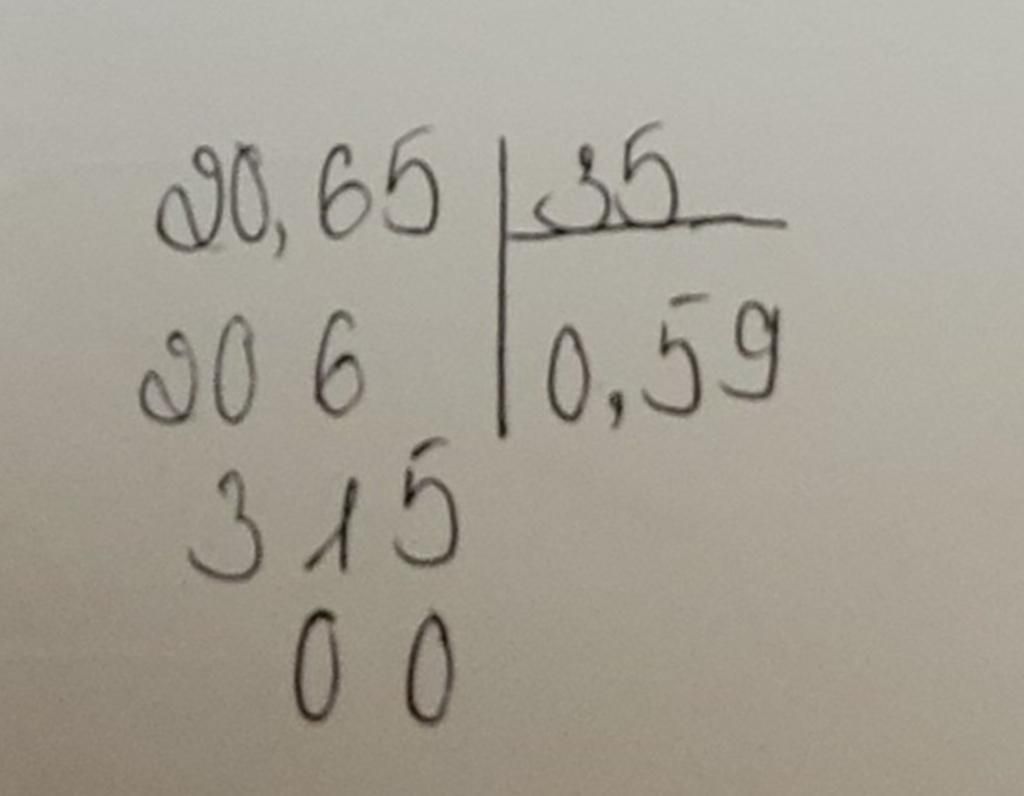 20,65 | 35
20 6 | 0,59
3 1 5
0 0